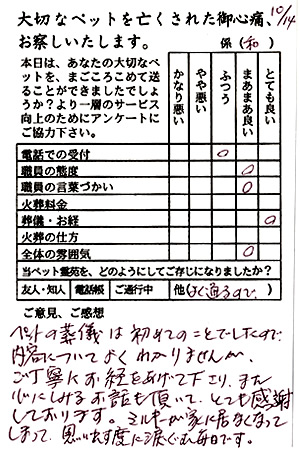 大切なペットを亡くされた御心痛、
お察しいたします。 係(和) 10/14
本日は、あなたの大切なペ
ットを、まごころこめて送
ることができましたでしょ
うか？より一層のサービス
向上のためにアンケートに
ご協力下さい。
かなり悪い
やや悪い
ふつう
まあまあ良い
とても良い
電話での受付 ○
職員の態度 ○
職員の言葉づかい ○
火葬料金
葬儀・お経 ○
火葬の仕方
全体の雰囲気 ○
当ペット霊苑を、どのようにしてご存じになりましたか？
友人・知人 電話帳 ご通行中 他(よく通るので)
ご意見、ご感想
ペットの葬儀は初めてのことでしたので
内容についてよくわかりませんが、
ご丁寧にお経をあげて下さり、また
心にしみるお話も頂いて、とても感謝
しております。ミルキーが家に居なくなって
しまって、思い出す度に涙ぐむ毎日です。